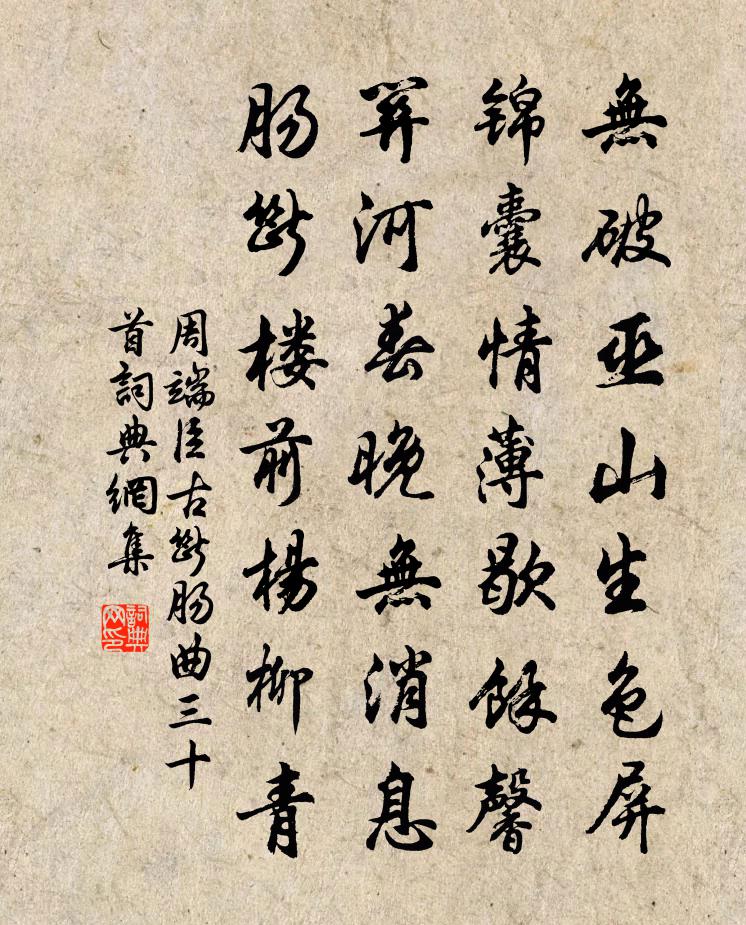 無破巫山生色屏
錦囊情薄歇餘馨
關河春晚無消息
腸斷樓前楊柳青
周端臣古斷腸曲三十
首詞典網集
詞典網印